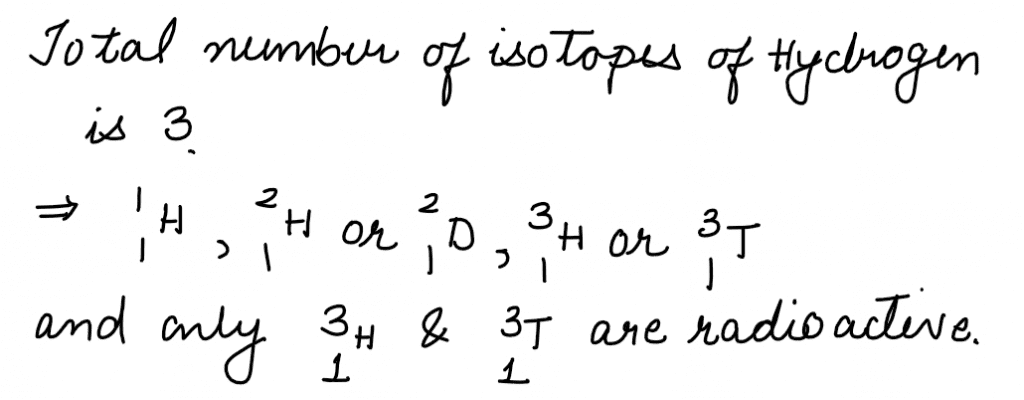 Total number of isotopes of Hydrogen
is 3.
⇒ ¹₁H, ²₁H or ²₁D, ³₁H or ³₁T
and only ³₁H & ³₁T are radioactive.